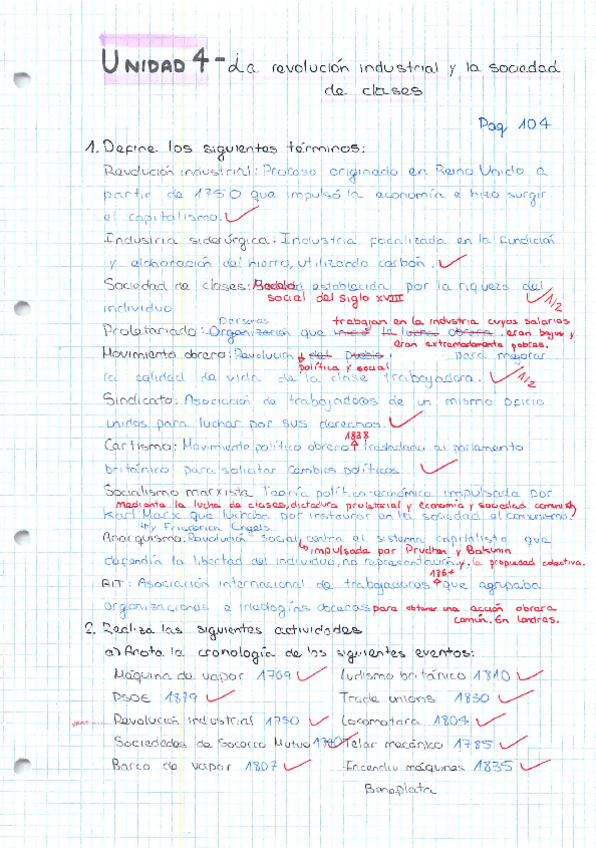 UNIDAD 4 - La revolución industrial y la sociedad
de clases
Pag 104
1. Define los siguientes términos:
Revolución industrial: Proceso originado en Reino Unido a
partir de 1750 que impulsó la economía e hizo surgir
el capitalismo.
Industria siderúrgica: Industria focalizada en la fundición
y elaboración del hierro, utilizando carbón.
Sociedad de clases: establecida por la riqueza del
social del siglo XVIII
individuo
1/2
Personas
trabajan en la industria cuyos salarios
Proletariado: Organización que la lucha obrera eran bajos y
eran extremadamente pobres.
Movimiento obrero: Revolución del pueblo para mejorar
política y social
la calidad de vida de la clase trabajadora. 1/2
Sindicato: Asociación de trabajadores de un mismo oficio
unidos para luchar por sus derechos.
1838
Cartismo: Movimiento político obrero trasladado al parlamento
británico para solicitar cambios políticos.
Socialismo marxista: Teoría político-económica impulsada por
mediante la lucha de clases, dictadura proletarial y economía y sociedad comunista
Karl Marx que luchaba por instaurar en la sociedad al comunismo.
y Friederich Engels
Anarquismo: Revolución social contra el sistema capitalista que
impulsada por Prudhon y Bakunin
defendía la libertad del individuo, no representación, y la propiedad colectiva.
1864
AIT: Asociación internacional de trabajadores que agrupaba
organizaciones e ideologías obreras para obtener una acción obrera
común. En Londres.
2. Realiza las siguientes actividades
a) Anota la cronología de los siguientes eventos:
Máquina de vapor 1769 Ludismo británico 1810
PSOE 1879 Trade unions 1830
Revolución industrial 1750 Locomotora 1804
Sociedades de Socorro Mutuo Telar mecánico 1785
Barco de vapor 1807 Incendio máquinas 1835
Bonaplata